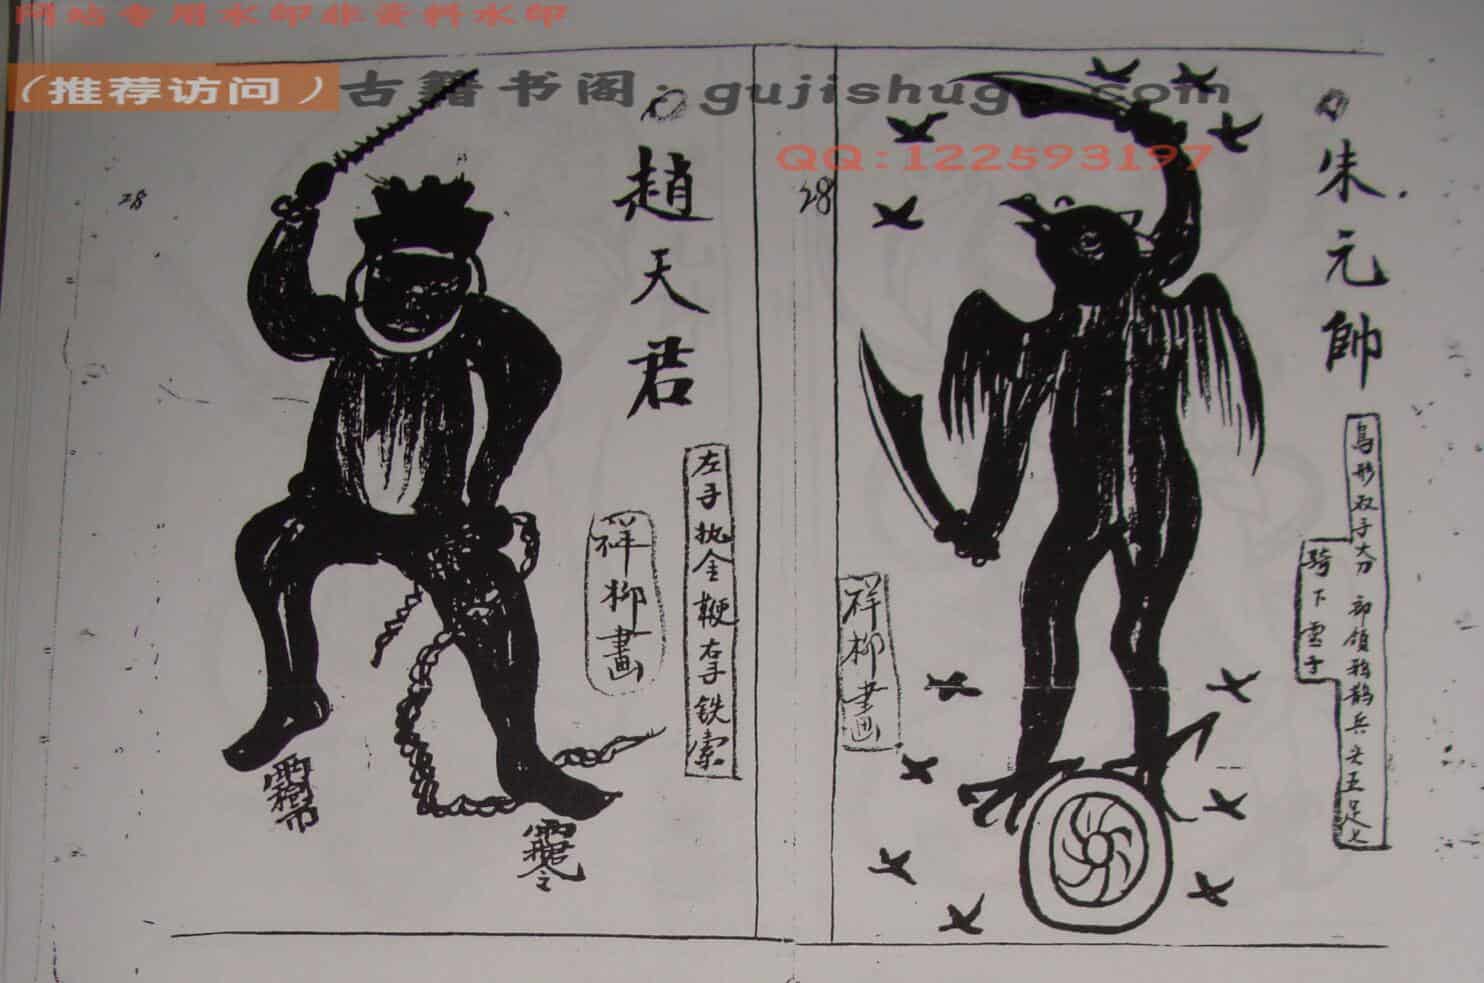 网站专用水印非资料水印
（推荐访问）古籍书阁：gujishuge.com
QQ:122593197
朱元帥
鳥形双手大刀 部領鴉鵲兵 火五足七
騎下雲
祥柳畫
28
趙天君
左手执金鞭右手铁索
祥柳畫
28